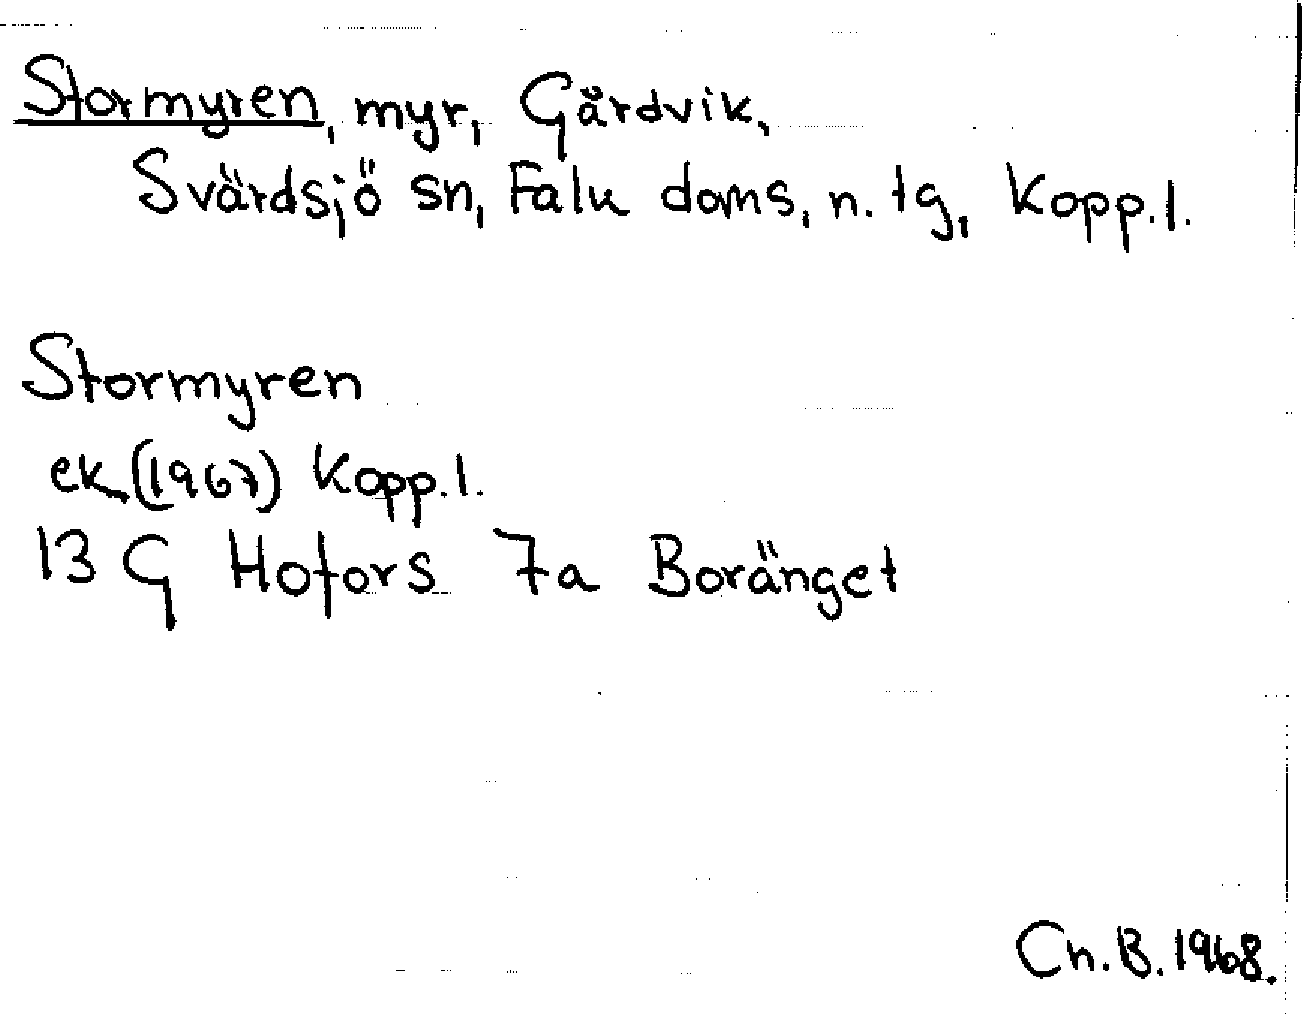 Stormyren, myr, Gårdvik,
Svärdsjö sn, Falu doms, n. tg, Kopp.l.
Stormyren
ek (1967) Kopp.l.
13 G Hofors 7a Boränget
Ch.B. 1968.